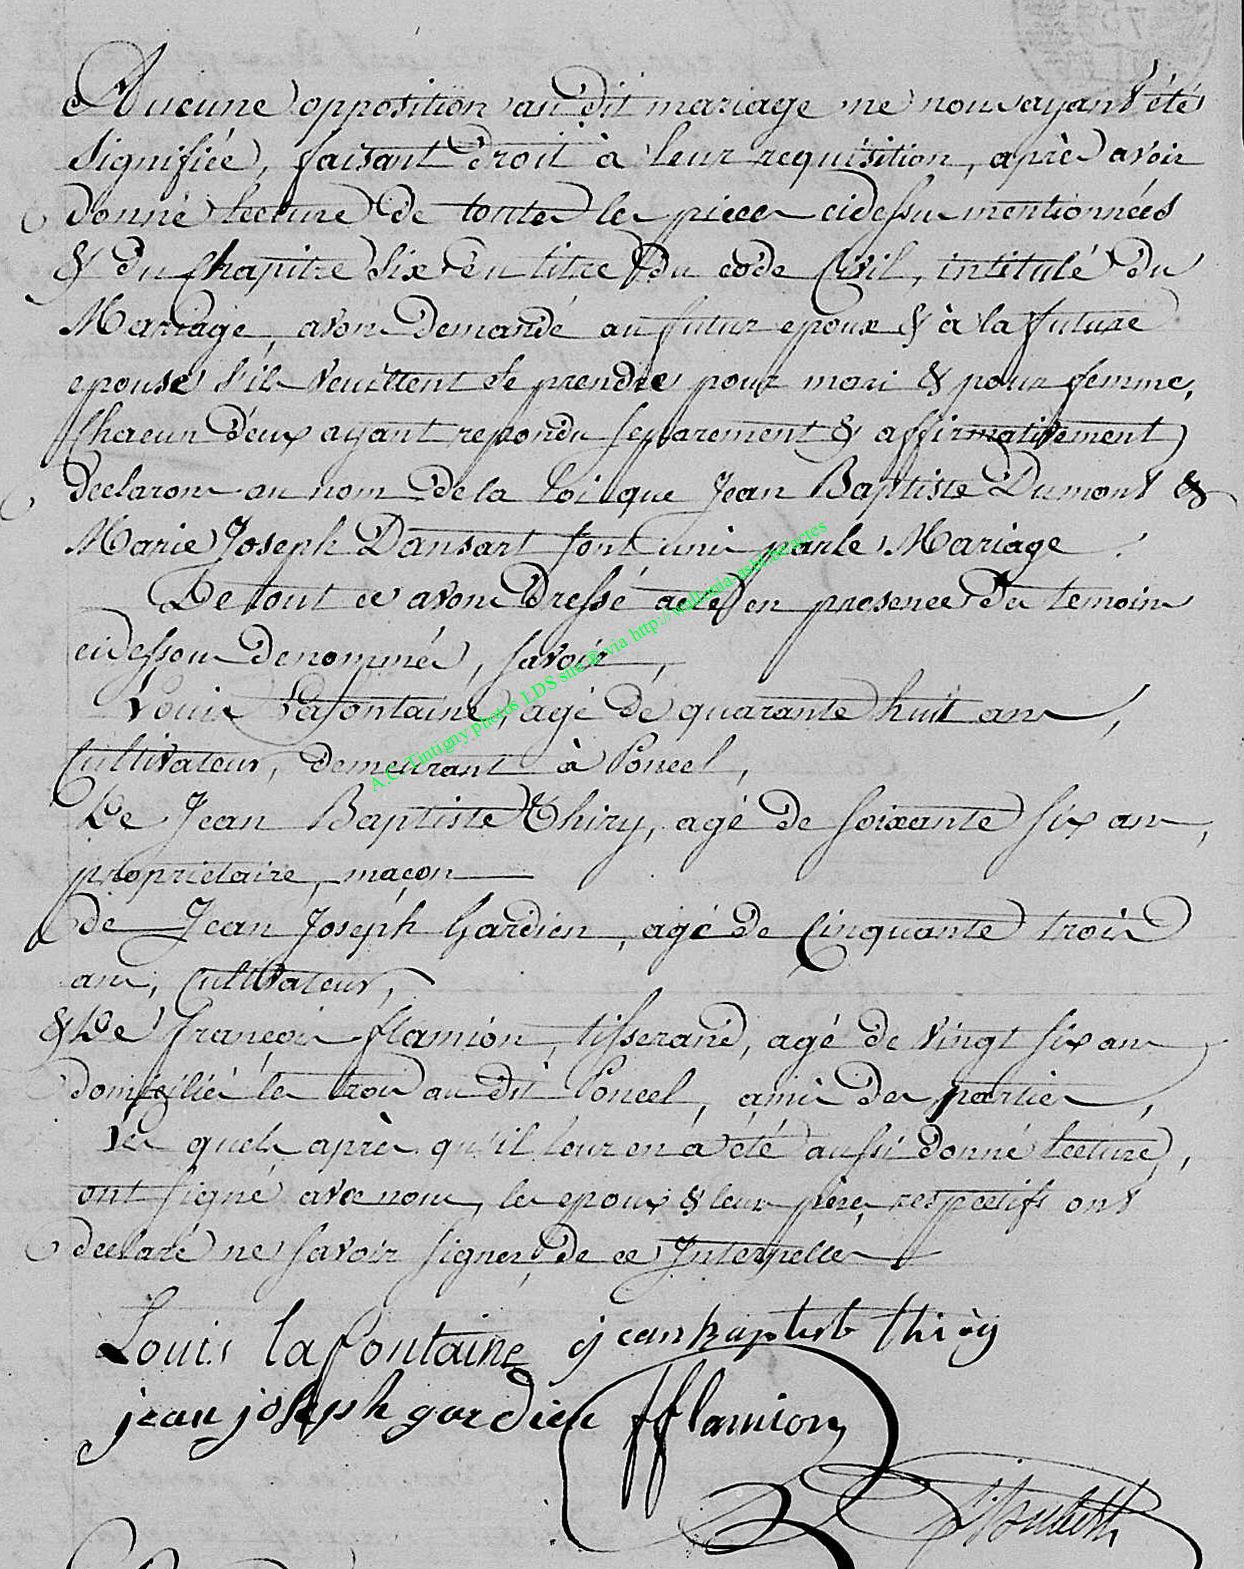 Aucune opposition au dit mariage ne nous ayant été
signifiée, faisant droit à leur requisition, après avoir
donné lecture de toutes les pieces cidessus mentionnées
& du Chapitre six du titre du code Civil, intitulé du
Mariage, avons demandé au futur epoux & à la future
epouse s'ils veuillent se prendre pour mari & pour femme,
Chacun d'eux ayant repondu separement & affirmativement
declarons au nom de la loi que Jean Baptiste Dumont &
Marie Joseph Dansart sont unis par le Mariage.
De tout ce avons dressé acte en presence des temoins
cidessous denommés, savoir,
Louis Lafontaine, agé de quarante huit ans,
Cultivateur, demeurant à Poncel,
De Jean Baptiste Thiry, agé de soixante six ans,
proprietaire, maçon
de Jean Joseph Gardien, agé de Cinquante trois
ans, Cultivateur,
& De François flamion, tisserand, agé de vingt six ans
domiciliés les trois au dit Poncel, amis des parties,
Les quels après qu'il leur en a été aussi donné lecture,
ont signé avec nous, les epoux & leurs pères respectifs ont
declaré ne savoir signer, de ce Interpellés
Louis lafontaine jean baptist thiry
jean joseph gardien fflamion
A.C. Tintigny photos LDS site & via http://wallonia-asbl.be/actes